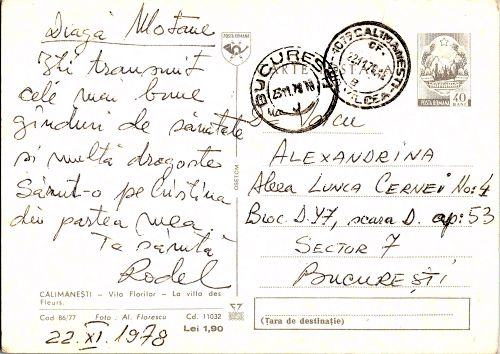 Dragă Motane
Îți transmit
cele mai bune
gînduri de sănătate
și multă dragoste
Sărut-o pe Cristina
din partea mea.
Te sărută
Rodel
CĂLIMĂNEȘTI — Vila Florilor — La villa des
Fleurs.
Cod 86/77 Foto : Al. Florescu Cd. 11032
Lei 1,90
22.XI.1978
OSETCM
POSTA ROMANA
CARTE POȘTALĂ
BUCUREȘTI
1079 CALIMANESTI
CF.
22.11.78
VILCEA
POSTA ROMANA
40
BANI
Voicu
ALEXANDRINA
Aleea LUNCA CERNEI No: 4
Bloc D.Y7, scara D. ap: 53
SECTOR 7
BUCUREȘTI
(Țara de destinație)